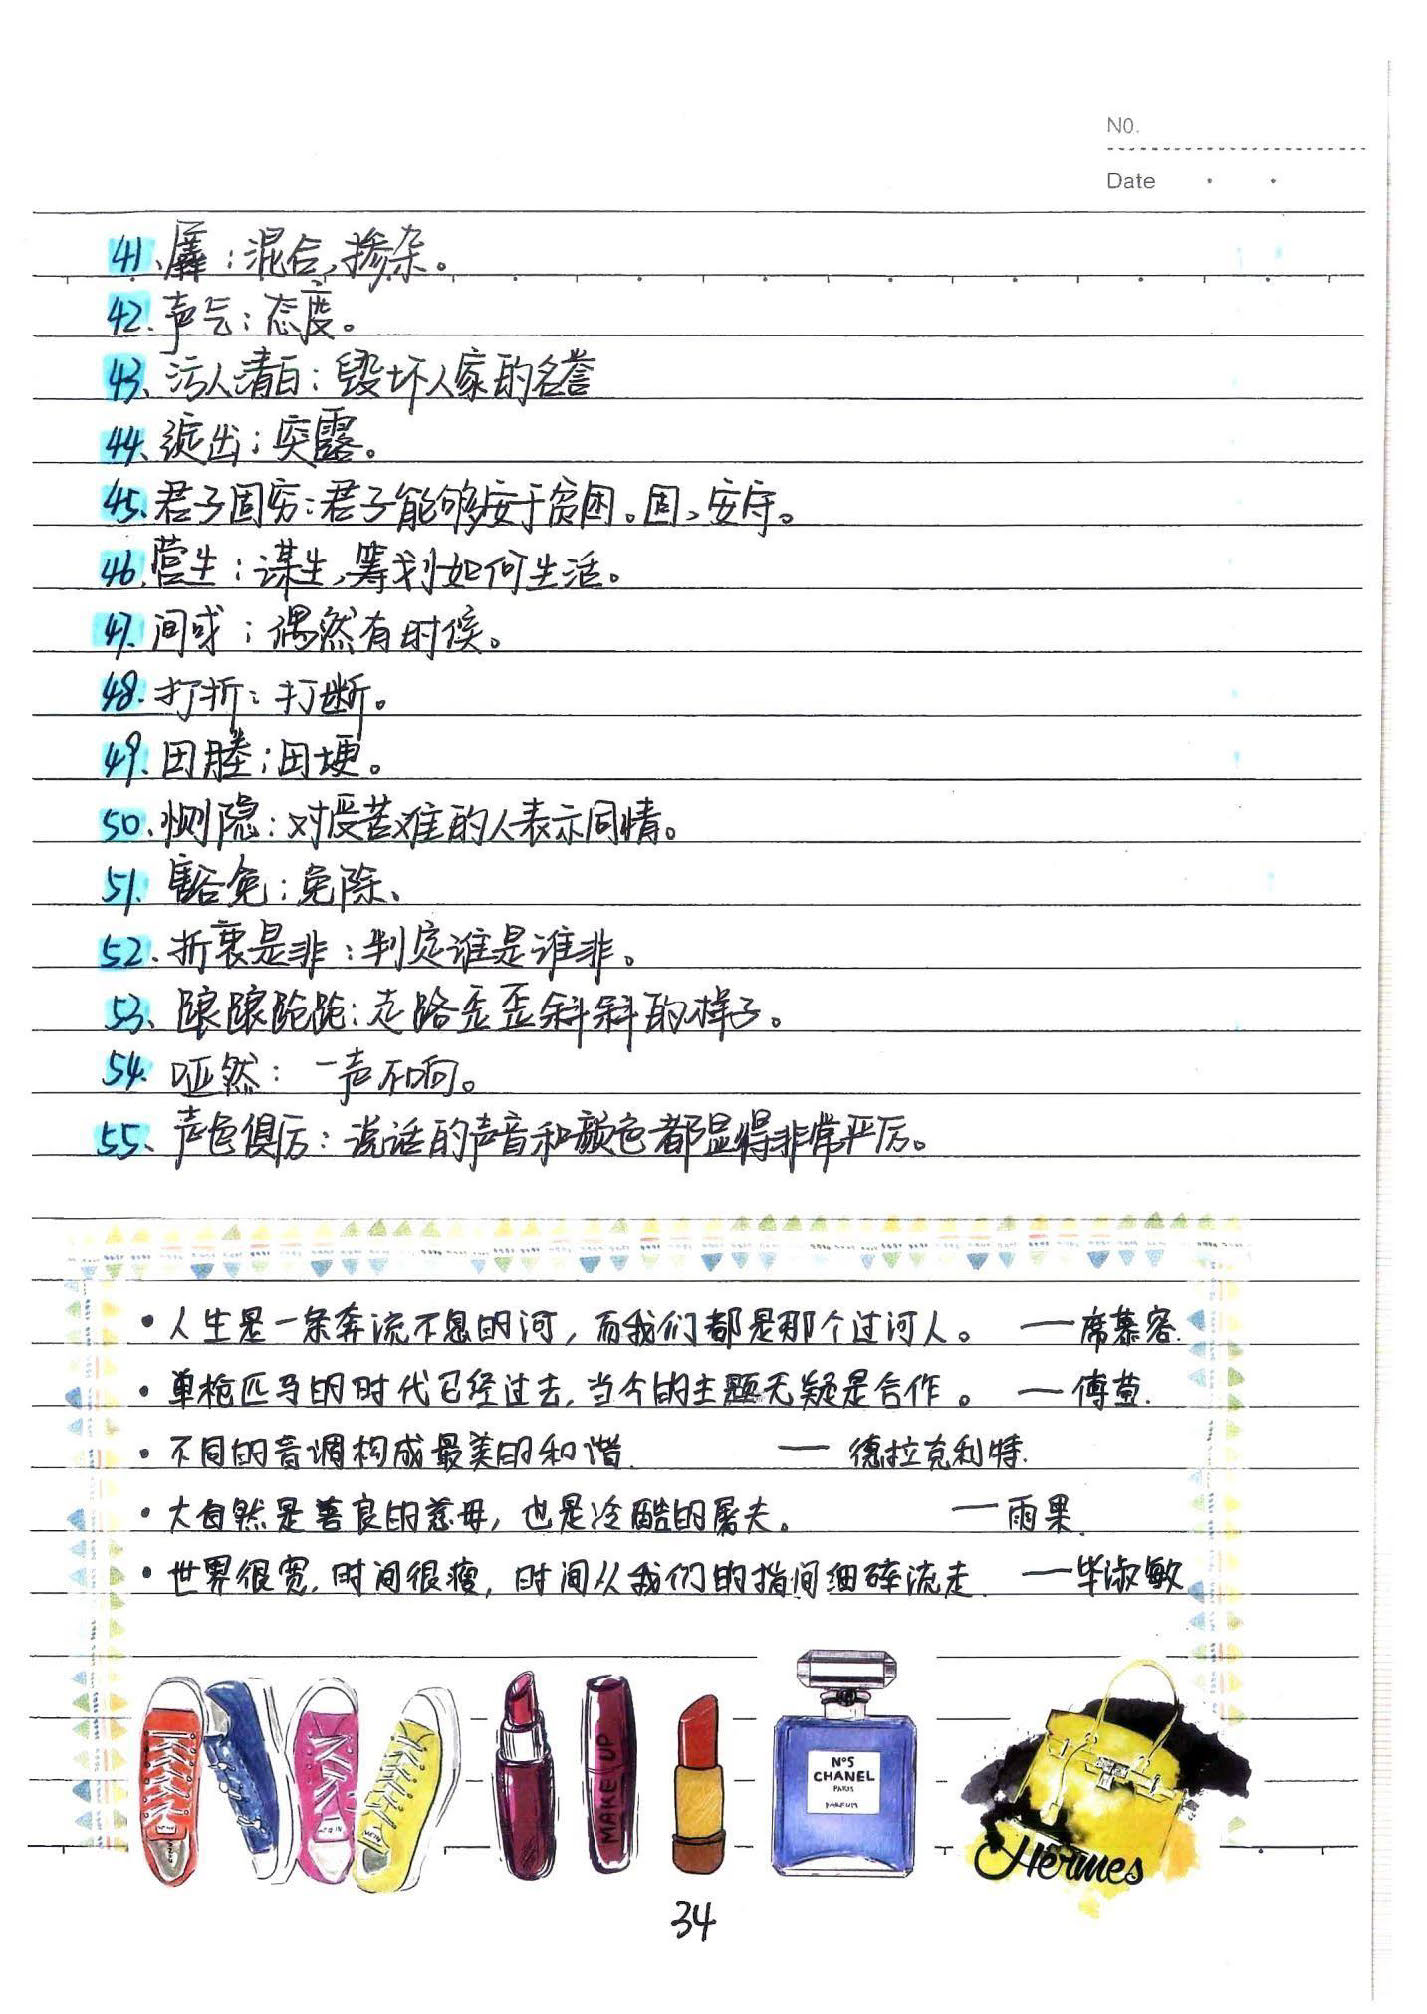 NO.
Date
41、羼：混合，掺杂。
42、声气：态度。
43、污人清白：毁坏人家的名誉
44、绽出：突露。
45、君子固穷：君子能够安于贫困。固，安守。
46、营生：谋生，筹划如何生活。
47、间或：偶然有时候。
48、打折：打断。
49、田塍：田埂。
50、恻隐：对受苦难的人表示同情。
51、豁免：免除、
52、折衷是非：判定谁是谁非。
53、踉踉跄跄：走路歪歪斜斜的样子。
54、哑然：一声不响。
55、声色俱厉：说话的声音和颜色都显得非常严厉。
·人生是一条奔流不息的河，而我们都是那个过河人。 ——席慕容.
·单枪匹马的时代已经过去，当今的主题无疑是合作。 ——傅萱.
·不同的音调构成最美的和谐. ——德拉克利特.
·大自然是善良的慈母，也是冷酷的屠夫。 ——雨果.
·世界很宽，时间很瘦，时间从我们的指间细碎流走. ——毕淑敏
MAKE UP
N°5
CHANEL
PARIS
PARFUM
Hermes
34